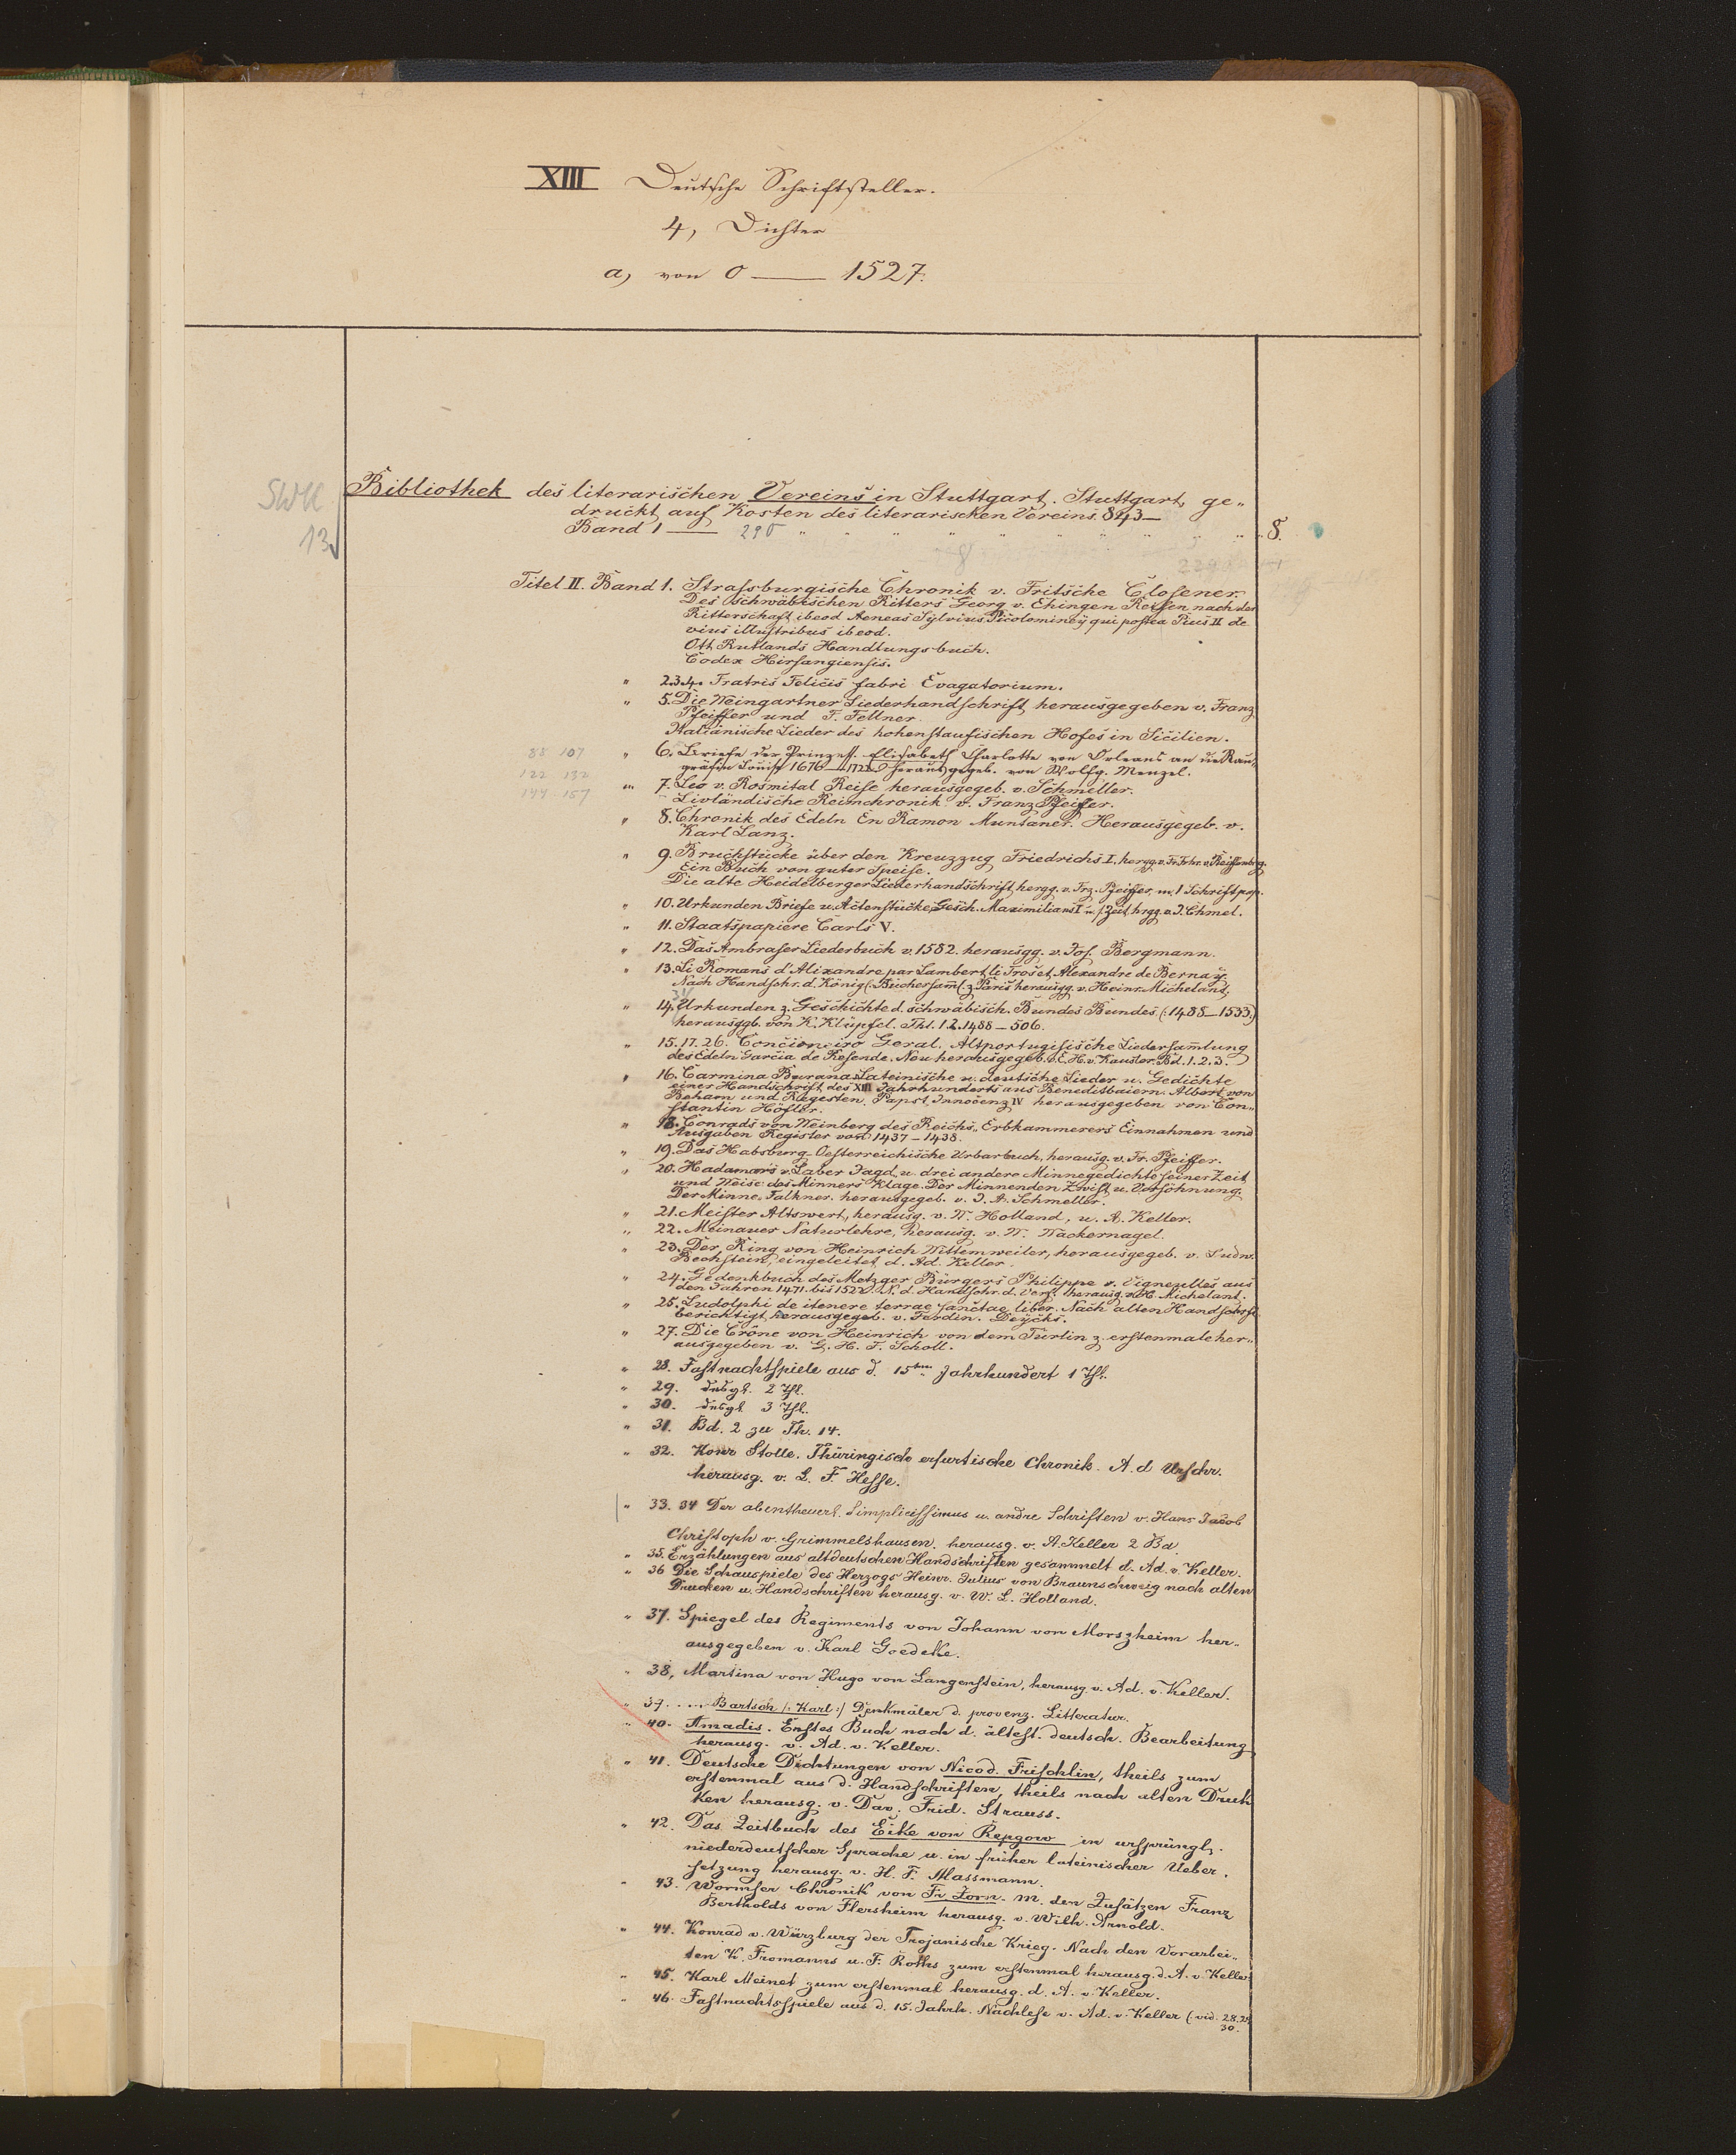 XIII Deutsche Schriftsteller.
4, Dichter
a, von 0 — 1527.
SWK
13.
Bibliothek des literarischen Vereins in Stuttgart. Stuttgart, ge„
druckt auf Kosten des literarischen Vereins. 843—
Band 1 — 290 " " " " " " " " " 8.
Titel II. Band 1. Strafsburgische Chronik v. Fritsche Closener.
Des schwäbischen Ritters Georg v. Ehingen Reisen nach der
Ritterschaft, ibeod Aeneas Sylvius Picolominey qui postea Pius II de
viris illustribus ibeod.
Ott Rutlands Handlungsbuch.
Codex Hirsaugiensis.
" 2.3.4. Fratris Felicis fabri Evagatorium.
" 5. Die Weingartner Liederhandschrift, herausgegeben v. Franz
Pfeiffer und F. Fellner.
Italiänische Lieder des hohenstaufischen Hofes in Sicilien.
88 107
122 132
144 - 157
" 6. Briefe der Prinzess. Elisabeth Charlotte von Orleans an die Rau„
gräfin Louise 1676—1722. Herausgegeb. von Wolfg. Menzel.
" 7. Leo v. Rosmital Reise herausgegeb. v. Schmeller.
Livländische Reimchronik v. Franz Pfeiffer.
" 8. Chronik des Edeln En Ramon Muntaner. Herausgegeb. v.
Karl Lanz.
" 9. Bruchstücke über den Kreuzzug Friedrichs I. hergg. v. Fr. Frhr. v. Reiffenberg.
Ein Buch von guter Speise.
Die alte Heidelberger Liederhandschrift, hergg. v. Frz. Pfeiffer, m. 1 Schriftprop.
" 10. Urkunden Briefe u. Actenstücke z. Gesch. Maximilians I u. s. Zeit, hrgg. v. J. Chmel.
" 11. Staatspapiere Carls V.
" 12. Das Ambraser Liederbuch v. 1582. herausgg. v. Jos. Bergmann.
" 13. Li Romans d'Alixandre par Lambert, li Tors et Alexandre de Bernay.
Nach Handschr. d. König(. Büchersam(. z. Paris herausgg. v. Heinr. Michelant.
" 14. Urkunden z. Geschichte d. schwäbisch. Bundes Bundes (: 1488—1533.)
herausggb. von K. Klüpfel. Thl. 1.2. 1488—506.
" 15. 17. 26. Concioneiro Geral. Altportugisische Liedersam̄lung
des Edeln Garcia de Resende. Neu herausgegeb. v. E. H. v. Kausler. Bd. 1. 2. 3.
" 16. Carmina Burana. Lateinische u. deutsche Lieder u. Gedichte
einer Handschrift des XIII Jahrhunderts aus Beneditbaiern. Albert von
Beham und Regesten. Papst Innocenz IV herausgegeben von Con„
stantin Höfler.
" 18. Conrads von Weinberg des Reichs„ Erbkammerers Einnahmen und
Ausgaben Register von 1437 – 1438.
" 19. Das Habsburg-Oesterreichische Urbarbuch, herausg. v. Fr. Pfeiffer.
" 20. Hadamars v. Laber Jagd u. drei andere Minnegedichte seiner Zeit
und Weise: des Minners Klage. Der Minnenden Zwist u. Versöhnung.
Der Minne Falkner. herausgegeb. v. J. A. Schmeller.
" 21. Meister Altswert, herausg. v. W. Holland, u. A. Keller.
" 22. Meinauer Naturlehre, herausg. v. W. Wackernagel.
" 23. Der Ring von Heinrich Wittenweiler, herausgegeb. v. Ludw.
Bechstein, eingeleitet d. Ad. Keller.
" 24. Gedenkbuch des Metzger Bürgers Philippe v. Vigneulles aus
den Jahren 1471. bis 1522. N. d. Handschr. d. Verf. herausg. v. H. Michelant.
" 25. Ludolphi de itenere terrae sanctae liber. Nach alten Handschrft.
berichtigt, herausgegeb. v. Ferdin. Deycks.
" 27. Die Crône von Heinrich von dem Türlin z. erstenmale her„
ausgegeben v. G. H. F. Scholl.
" 28. Fastnachtspiele aus d. 15ten. Jahrhundert 1 Thl.
" 29. desgl. 2 Thl.
" 30. desgl. 3 Thl.
" 31. Bd. 2 zu Th. 14.
" 32. Konr. Stolle. Thüringisch erfurtische Chronik. A. d. Urschr.
herausg. v. L. F. Hesse.
" 33. 34 Der abentheuerl. Simplicissimus u. andre Schriften v. Hans Jacob
Christoph v. Grimmelshausen. herausg. v. A. Keller 2 Bd.
" 35. Erzählungen aus altdeutschen Handschriften gesammelt d. Ad. v. Keller.
" 36 Die Schauspiele des Herzogs Heinr. Julius von Braunschweig nach alten
Drucken u. Handschriften herausg. v. W. L. Holland.
" 37. Spiegel des Regiments von Johann von Morszheim her„
ausgegeben v. Karl Goedeke.
" 38, Martina von Hugo von Langenstein, herausg. v. Ad. v. Keller.
" 39. .... Bartsch /: Karl :/ Denkmäler d. provenz. Litteratur.
" 40. Amadis. Erstes Buch nach d. ältest. deutsch. Bearbeitung
herausg. v. Ad. v. Keller.
" 41. Deutsche Dichtungen von Nicod. Frischlin, theils zum
erstenmal aus d. Handschriften, theils nach alten Druk
ken herausg. v. Dav. Frid. Strauss.
" 42. Das Zeitbuch des Eike von Repgow in ursprüngl.
niederdeutscher Sprache u. in früher lateinischer Ueber.
setzung herausg. v. H. F. Massmann.
" 43. Wormser Chronik von Fr. Zorn. m. den Zusätzen Franz
Bertholds von Flersheim herausg. v. Wilh. Arnold.
" 44. Konrad v. Würzburg der Trojanische Krieg. Nach den Vorarbei„
ten K. Fromanns u. F. Roths zum erstenmal herausg. d. A. v. Keller
" 45. Karl Meinet zum erstenmal herausg. d. A. v. Keller.
" 46. Fastnachtsspiele aus d. 15. Jahrh. Nachlese v. Ad. v. Keller (: vid. 28. 29
30.